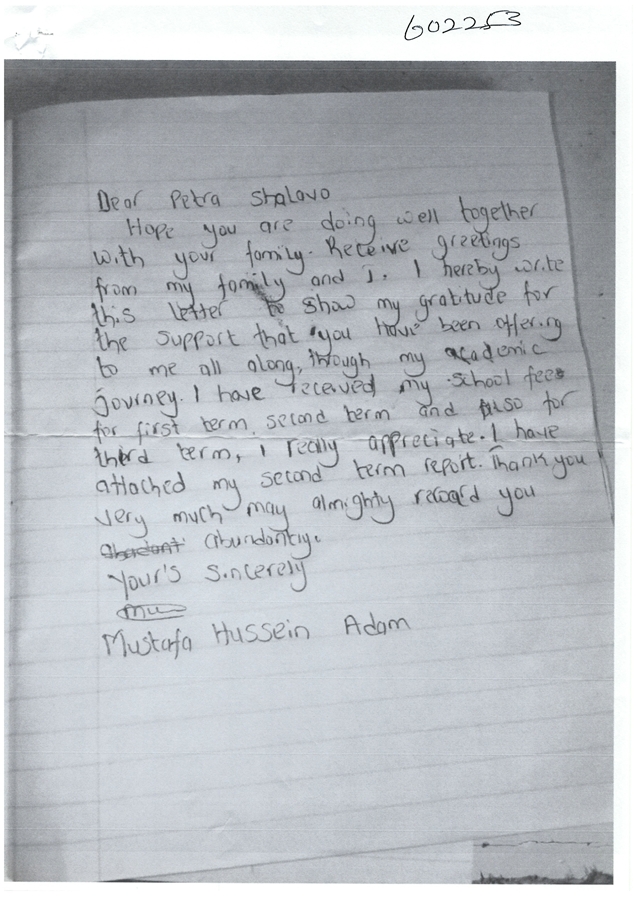 602253
Dear Petra Shalavo
Hope you are doing well together
with your family. Receive greetings
from my family and I. I hereby write
this letter to show my gratitude for
the support that you have been offering
to me all along, through my academic
journey. I have received my school fees
for first term, second term and also for
third term, I really appreciate. I have
attached my second term report. Thank you
very much may almighty reward you
abundantly.
Your's sincerely
Mustafa Hussein Adam